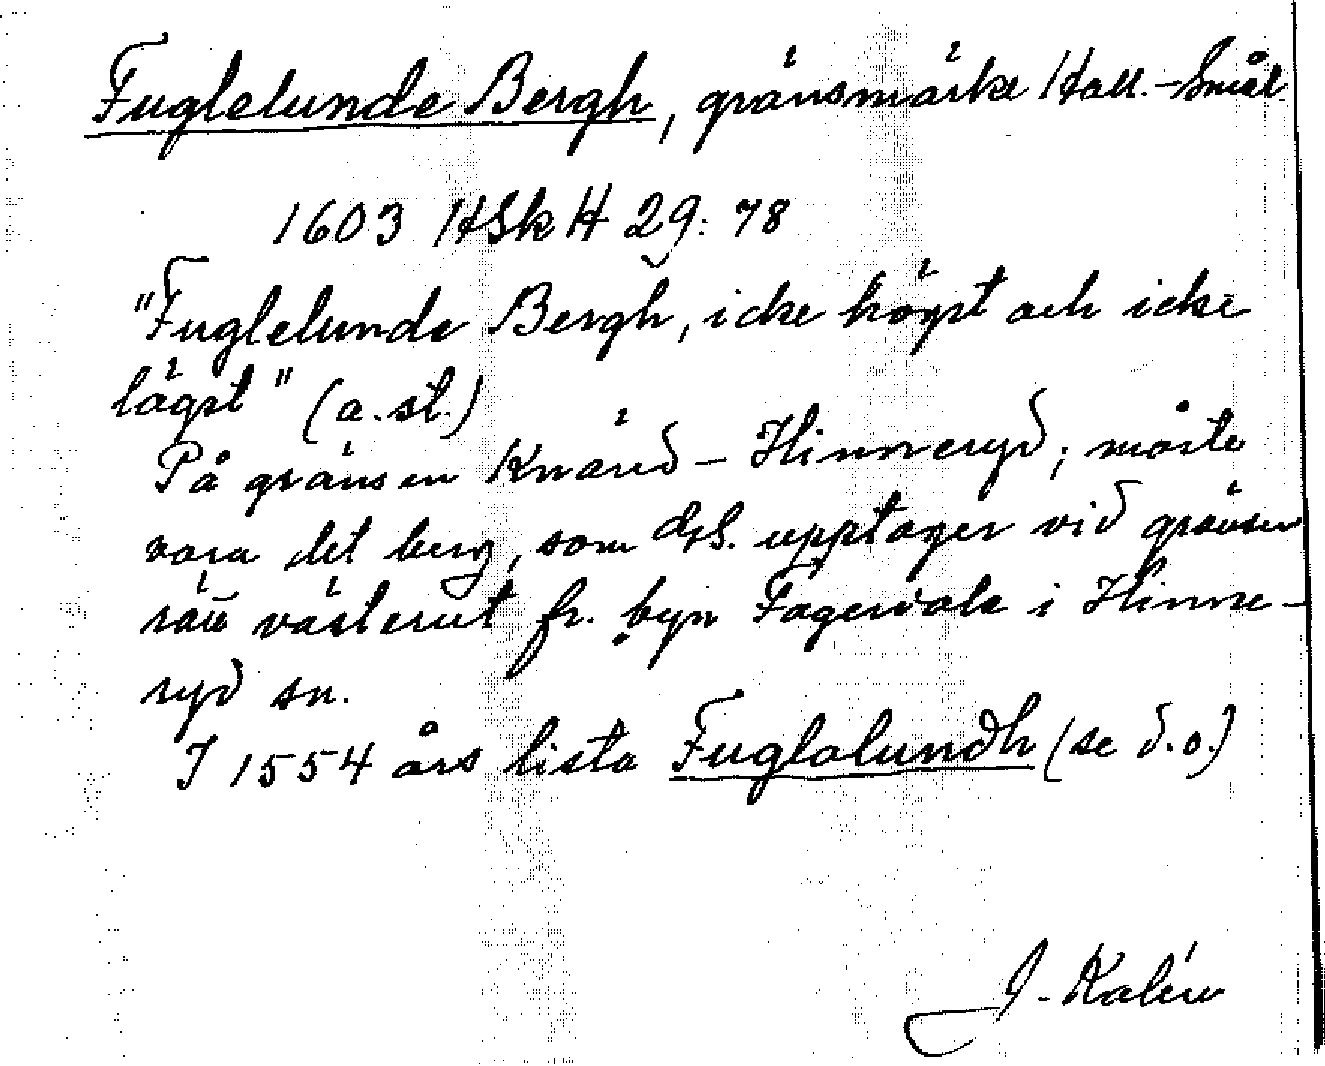 Fuglelunde Bergh, gränsmärke Hall.-Smål.
1603 HSkH 29: 78
"Fuglelunde Bergh, icke högst och icke
lägst" (a.st.)
På gränsen Knäred – Hinneryd; måste
vara det berg, som GS. upptager vid gränsen
rätt västerut fr. byn Fagerdala i Hinne-
ryd sn.
I 1554 års lista Fuglalundh (se d.o.)
J. Kalén